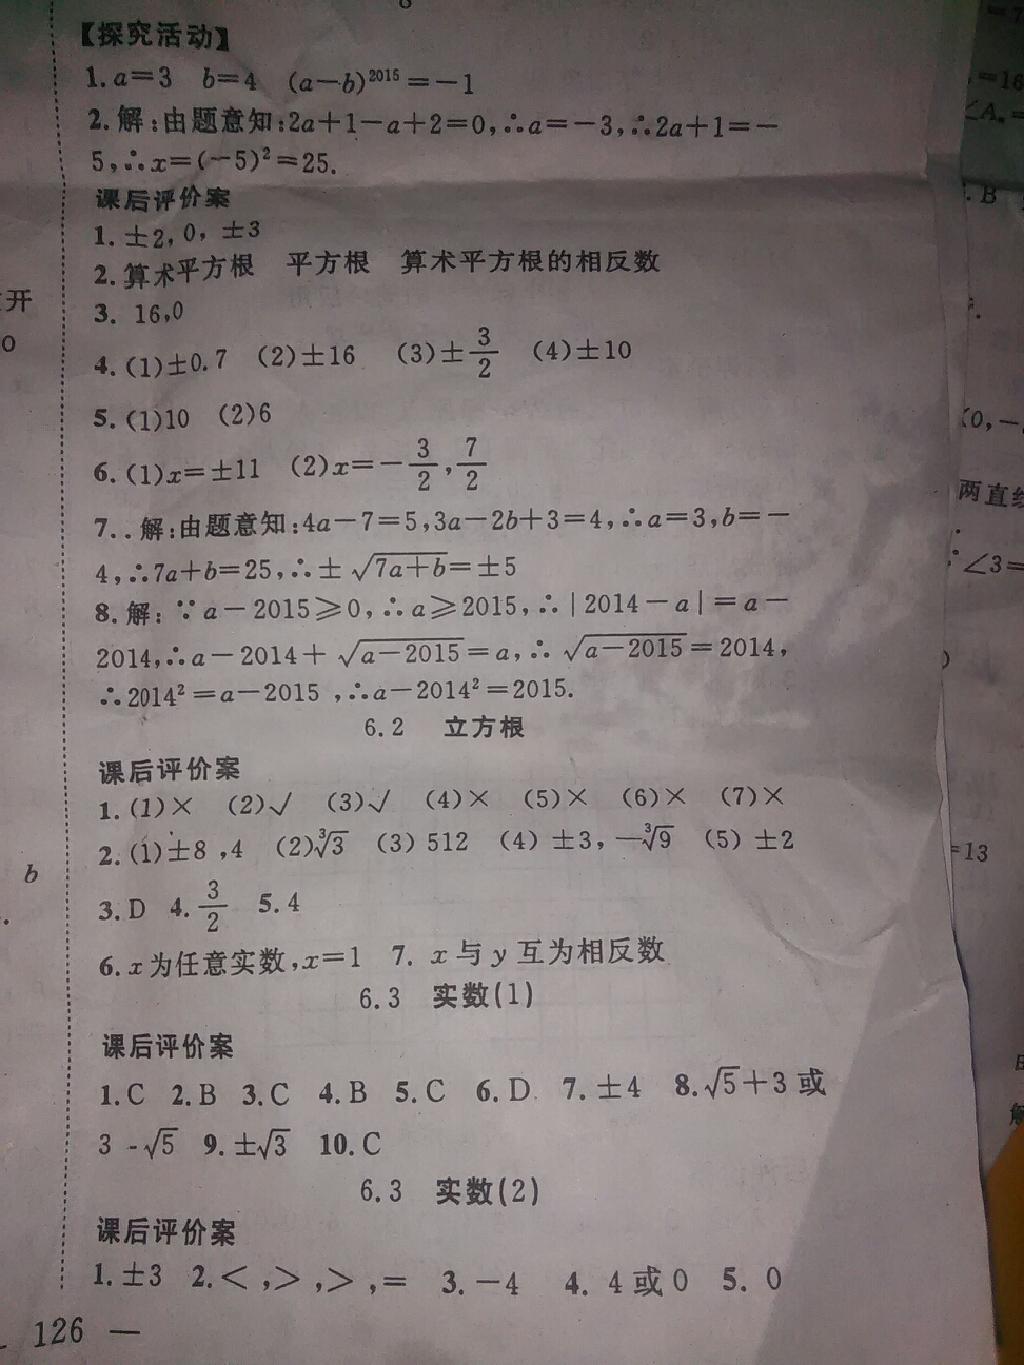 【探究活动】
1. a=3 b=4 (a-b)²⁰¹⁵=-1
2.解:由题意知:2a+1-a+2=0,∴a=-3,∴2a+1=-
5,∴x=(-5)²=25.
课后评价案
1. ±2,0, ±3
2.算术平方根 平方根 算术平方根的相反数
3. 16,0
4.(1)±0.7 (2)±16 (3)±3/2 (4)±10
5.(1)10 (2)6
6.(1)x=±11 (2)x=-3/2,7/2
7..解:由题意知:4a-7=5,3a-2b+3=4,∴a=3,b=-
4,∴7a+b=25,∴±√(7a+b)=±5
8.解:∵a-2015≥0,∴a≥2015,∴|2014-a|=a-
2014,∴a-2014+√(a-2015)=a,∴√(a-2015)=2014,
∴2014²=a-2015,∴a-2014²=2015.
6.2 立方根
课后评价案
1.(1)× (2)√ (3)√ (4)× (5)× (6)× (7)×
2.(1)±8,4 (2)∛3 (3)512 (4)±3,—∛9 (5)±2
3.D 4.3/2 5.4
6.x为任意实数,x=1 7. x与y互为相反数
6.3 实数(1)
课后评价案
1.C 2.B 3.C 4.B 5.C 6.D 7.±4 8.√5+3或
3-√5 9.±√3 10.C
6.3 实数(2)
课后评价案
1.±3 2.<,>,>,= 3.-4 4. 4或0 5. 0
126 —
开
b
=16
∠A
. B
(0,-
两直线
∠3=
=13